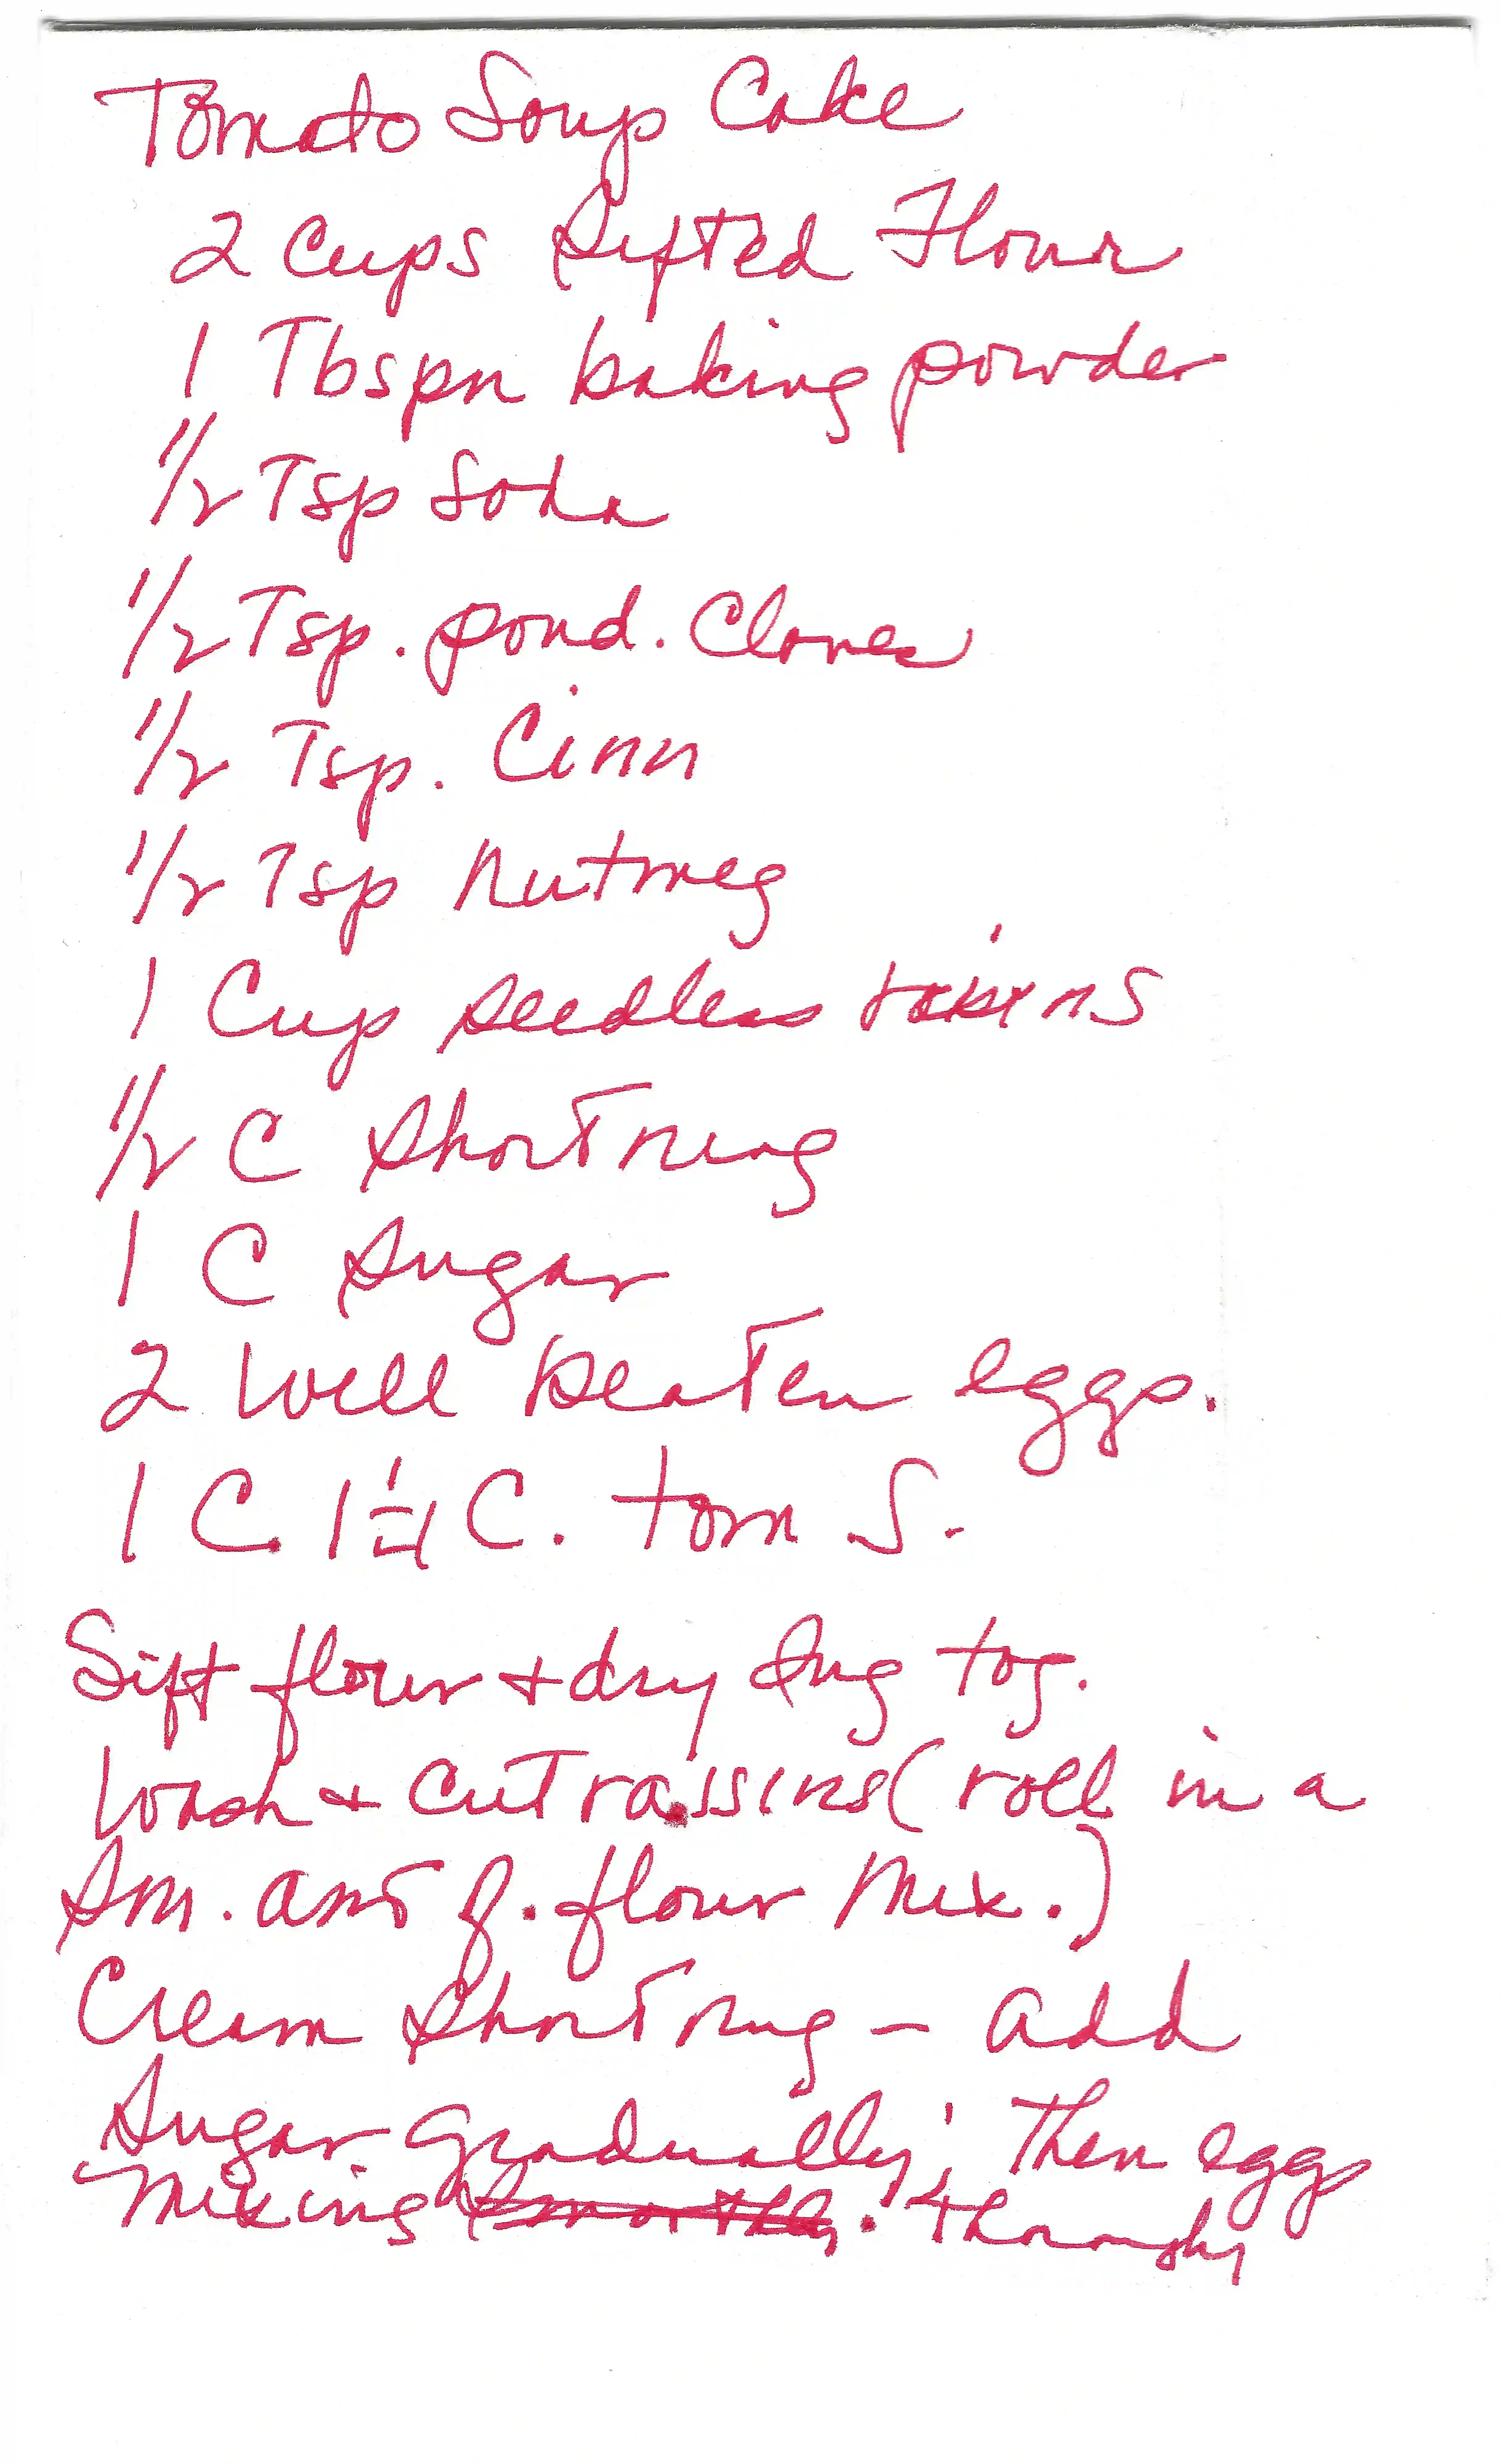 Tomato Soup Cake
2 Cups Sifted Flour
1 Tbspn baking powder
1/2 Tsp Soda
1/2 Tsp. powd. Cloves
1/2 Tsp. Cinn
1/2 Tsp Nutmeg
1 Cup seedless
1/2 C Shortning
1 C Sugar
2 Well beaten eggs.
1 C. 1 1/4 C. tom S.
Sift flour + dry Ing tog.
Wash + cut raisins (roll in a
Sm. amt of. flour Mix.)
Cream Shortning - add
Sugar gradually; Then eggs
Mixing thoroughly